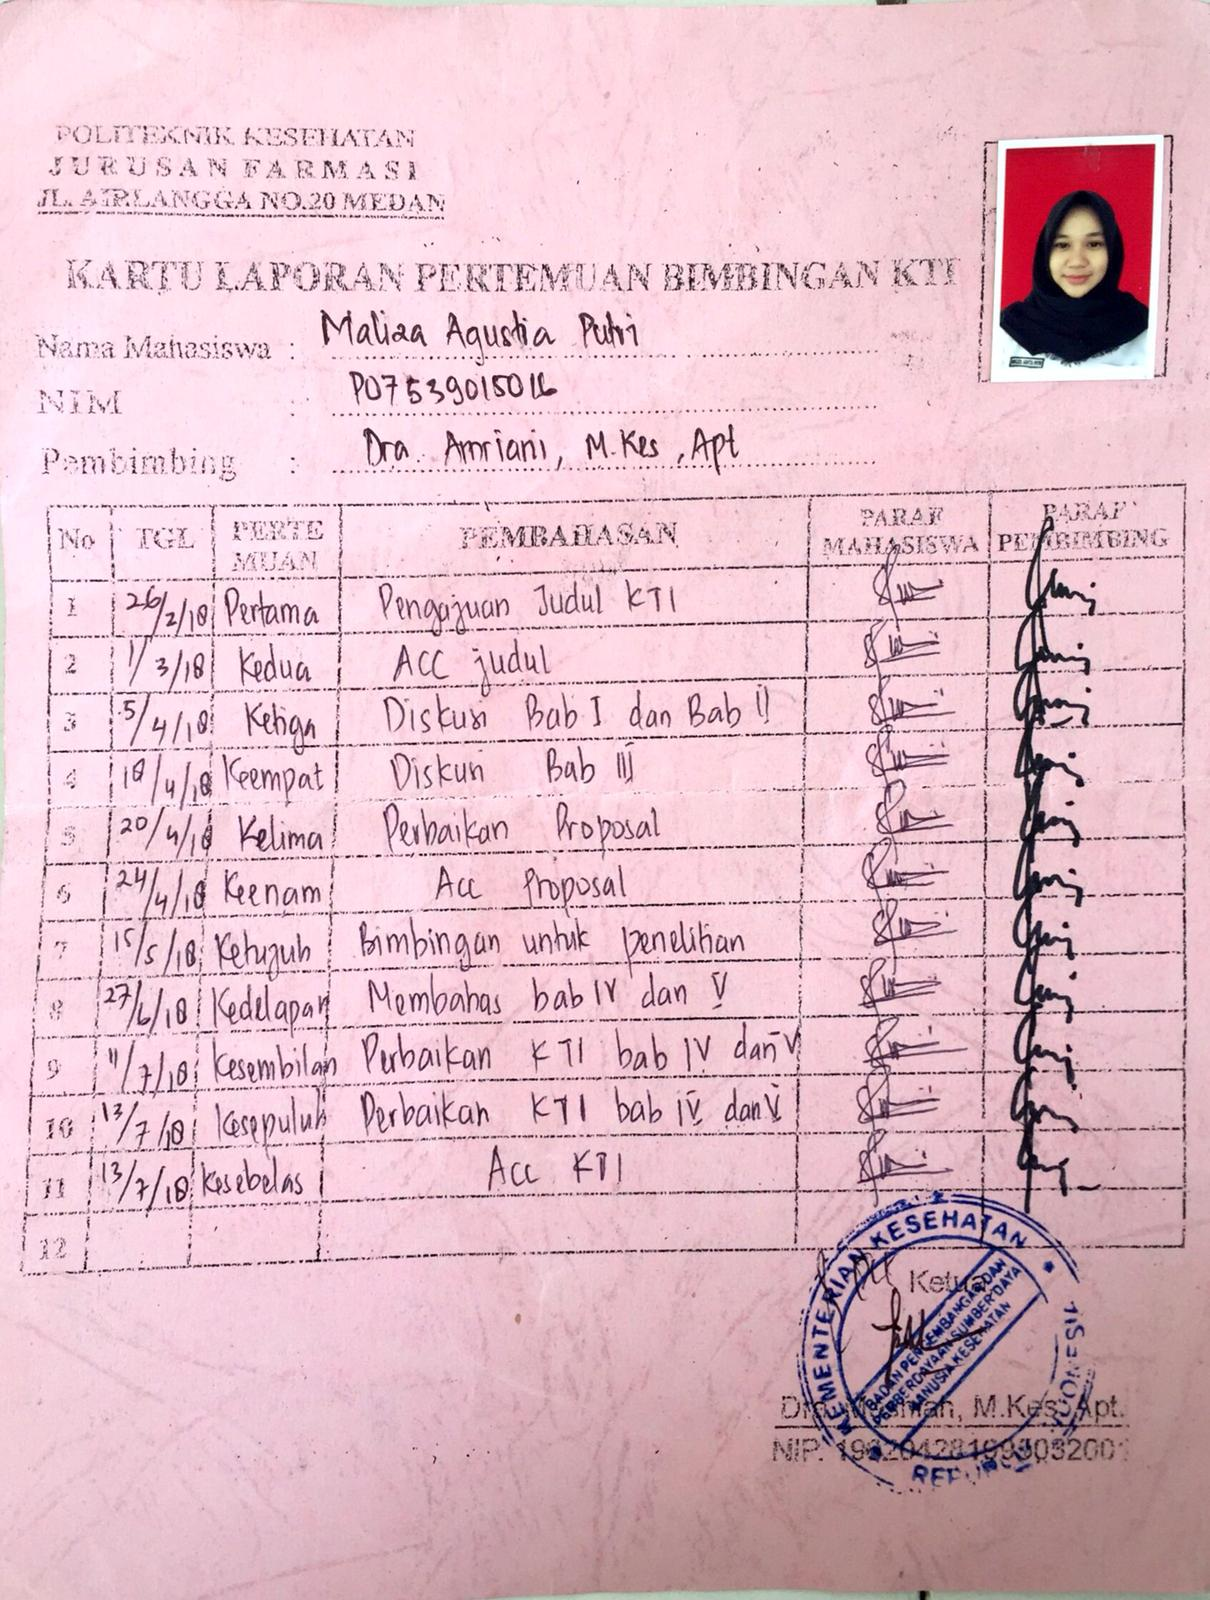 POLITEKNIK KESEHATAN
JURUSAN FARMASI
JL. AIRLANGGA NO.20 MEDAN
KARTU LAPORAN PERTEMUAN BIMBINGAN KTI
Nama Mahasiswa : Maliza Agustia Putri
NIM : P07539015016
Pembimbing : Dra. Amriani, M.Kes, Apt
No TGL PERTEMUAN PEMBAHASAN PARAF MAHASISWA PARAF PEMBIMBING
1 26/2/18 Pertama Pengajuan Judul KTI
2 1/3/18 Kedua ACC judul
3 5/4/18 Ketiga Diskusi Bab I dan Bab II
4 18/4/18 Keempat Diskusi Bab III
5 20/4/18 Kelima Perbaikan Proposal
6 24/4/18 Keenam Acc Proposal
7 15/5/18 Ketujuh Bimbingan untuk penelitian
8 27/6/18 Kedelapan Membahas bab IV dan V
9 11/7/18 Kesembilan Perbaikan KTI bab IV dan V
10 13/7/18 Kesepuluh Perbaikan KTI bab IV dan V
11 13/7/18 Kesebelas Acc KTI
12
Ketua
KEMENTERIAN KESEHATAN
BADAN PENGEMBANGAN DAN
PEMBERDAYAAN SUMBER DAYA
MANUSIA KESEHATAN
REPUBLIK INDONESIA
M.Kes. Apt.
NIP.